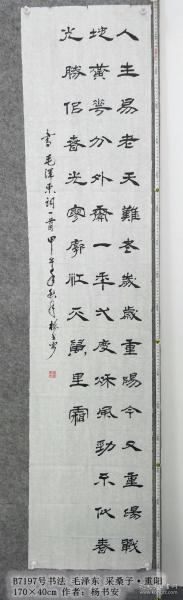 人生易老天難老歲歲重陽今又重陽戰
地黃花分外香一年一度秋風勁不似春
光勝似春光寥廓江天萬里霜
毛澤東詞一首甲午年秋月楊書安
B7197号书法 毛泽东 采桑子·重阳
170×40cm 作者：杨书安